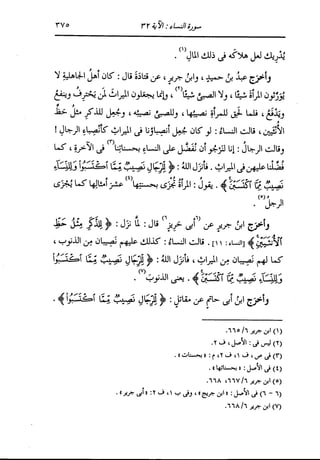 سورة النساء : الآية ٣٢
٣٧٥
يُدْرِيك لعل هلاكَه فى ذلك المالِ(١) .
وأخرَج عبدُ بنُ حميدٍ ، وابنُ جريرٍ ، عن قتادةَ قال : كان أهلُ الجاهليةِ لا
يُوَرِّثون المرأةَ شيئًا ، ولا الصبىَّ شيئًا(٢) ، وإنما يجعلون الميراثَ لمن يَحْترفُ وينفعُ
ويَدْفَعُ ، فلما لحِق للمرأةِ نصيبُها ، وللصبىِّ نصيبُه ، وجُعِل للذكرِ مثلُ حظِّ
الأُنثيين ، قالت النساءُ : لو كان جُعِل أنصباؤنا فى الميراثِ كأنصباءِ الرجالِ !
وقالت الرجالُ : إنا لنرجُو أن نُفضَّلَ على النساءِ بحسناتِنا(٣) فى الآخرةِ ، كما
فُضِّلنا عليهن فى الميراثِ . فأنزل اللهُ : ﴿ لِلرِّجَالِ نَصِيبٌ مِّمَّا اكْتَسَبُوا وَلِلنِّسَاءِ
نَصِيبٌ مِّمَّا اكْتَسَبْنَ ﴾ . يقولُ : المرأةُ تُجْزَى بحسنتِها(٤) عشرَ أمثالِها كما يُجْزَى
الرجلُ(٥) .
وأخرَج ابنُ جريرٍ عن (٦أبى حَرِيزٍ٦) قال : لمَّا نزَل : ﴿ لِلذَّكَرِ مِثْلُ حَظِّ
الْأُنثَيَيْنِ ﴾ [النساء : ١١] . قالت النساءُ : كذلك عليهم نصيبان من الذنوبِ ،
كما لهم نصيبان من الميراثِ ، فأنزَل اللهُ : ﴿ لِلرِّجَالِ نَصِيبٌ مِّمَّا اكْتَسَبُوا
وَلِلنِّسَاءِ نَصِيبٌ مِّمَّا اكْتَسَبْنَ ﴾ . يعنى الذنوبَ(٧) .
وأخرَج ابنُ أبى حاتمٍ عن مقاتلٍ : ﴿ لِلرِّجَالِ نَصِيبٌ مِّمَّا اكْتَسَبُوا ﴾ .
(١) ابن جرير ٦/ ٦٦٥.
(٢) ليس فى : الأصل ، ف ٢.
(٣) فى ص ، ف ١، ف ٢، م : « بحسناتٍ » .
(٤) فى الأصل : « بحسناتها » .
(٥) ابن جرير ٦/ ٦٦٧، ٦٦٨.
(٦ - ٦) فى الأصل : « ابن جريج » ، وفى ب ١، ف ٢: « أبى جرير » .
(٧) ابن جرير ٦/ ٦٦٨.